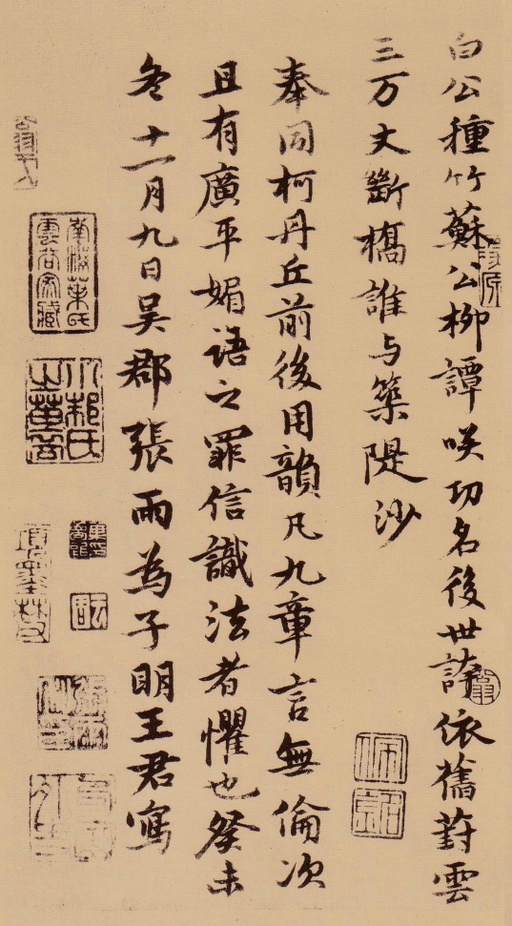 白公種竹蘇公柳譚咲功名後世誇依舊葑雲
三万丈斷橋誰与築隄沙
奉同柯丹丘前後用韻凡九章言無倫次
且有廣平媚語之罪信識法者懼也癸未
冬十一月九日吴郡張雨為子明王君寫
南海葉氏雲谷家藏